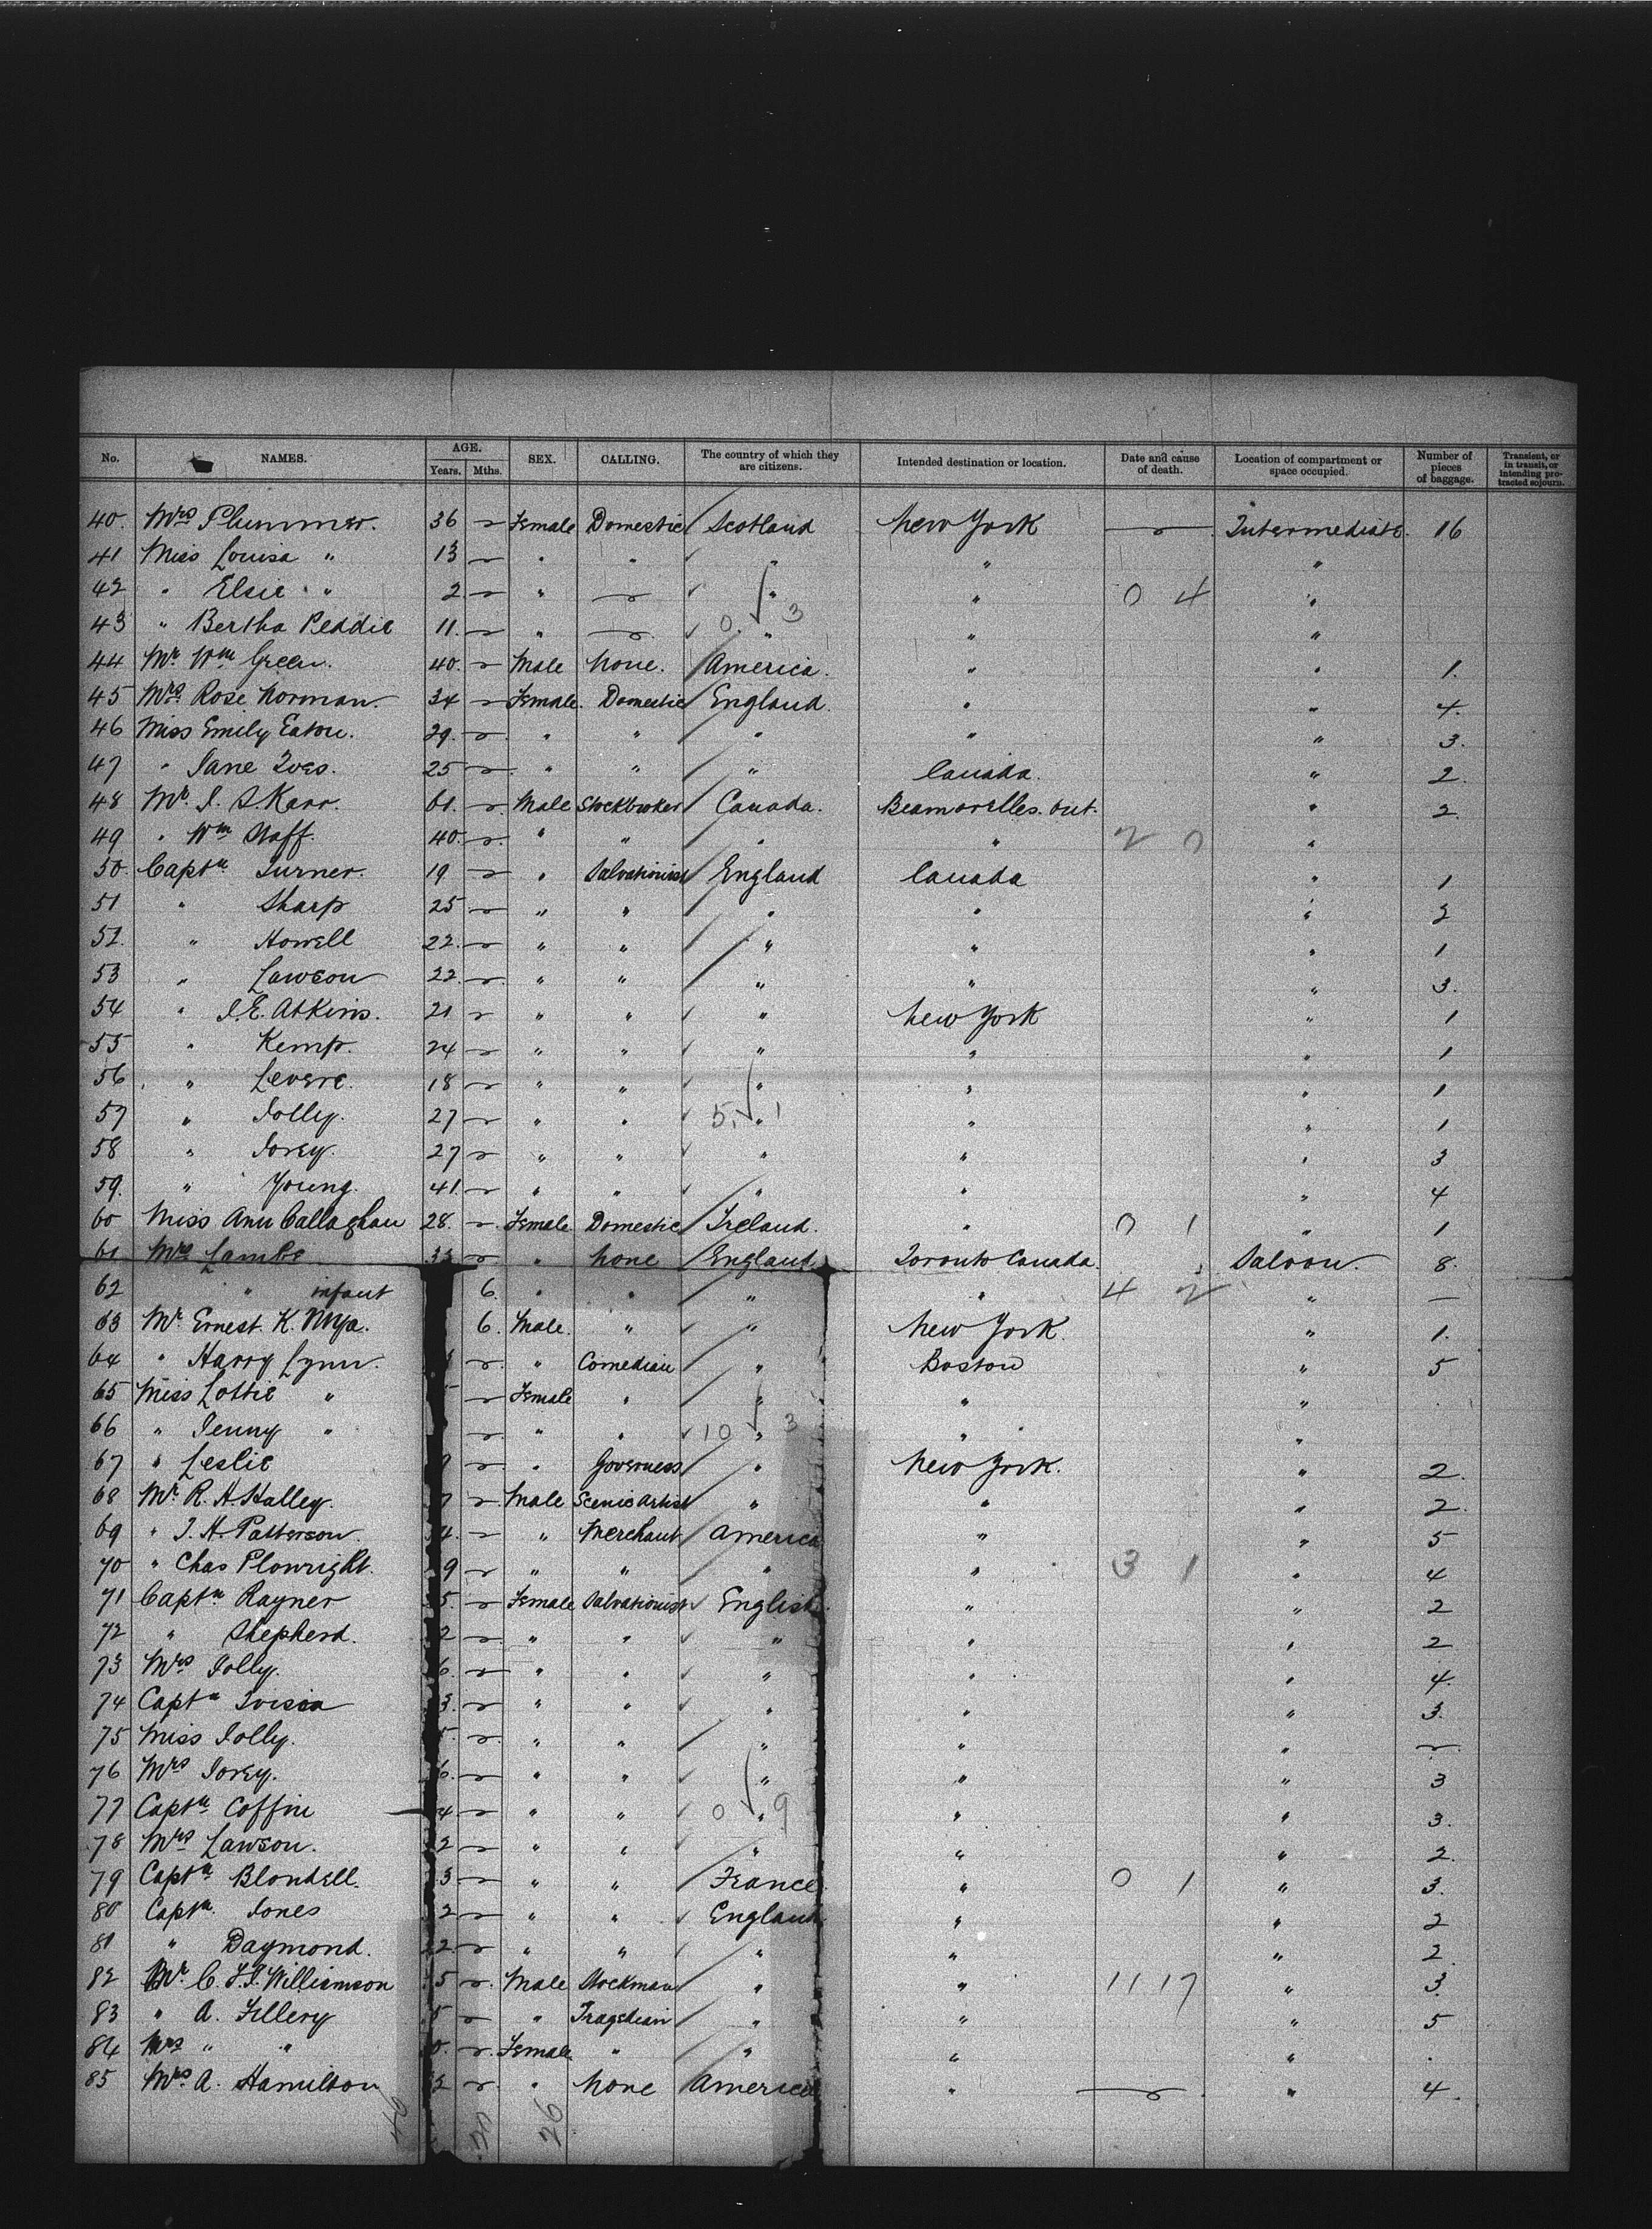 No. NAMES. AGE. Years. Mths. SEX. CALLING. The country of which they are citizens. Intended destination or location. Date and cause of death. Location of compartment or space occupied. Number of pieces of baggage. Transient, or in transit, or intending protracted sojourn.
40. Mrs Plummer. 36 Female Domestic Scotland New York Intermediate. 16
41 Miss Louisa " 13 " " " " "
42 " Elsie " 2 " " " 0 4 "
43 " Bertha Peddie 11. " 0 3 " " "
44 Mr Wm Green. 40. Male None. America. " " 1.
45 Mrs Rose Norman. 34 Female. Domestic England. " " 4.
46 Miss Emily Eaton. 29. " " " " " 3.
47 " Jane Ives. 25 " " " Canada. " 2.
48 Mr. J. S. Karr. 61. Male Stockbroker Canada. " 2.
49 " Wm Staff. 40. " " " " 2 0 "
50 Captn Turner. 19 " Salvationist England Canada " 1
51 " Sharp 25 " " " " " 2
52. " Howell 22. " " " " " 1
53 " Lawson 22. " " " " " 3.
54 " J.E. Atkins. 21 " " " New York " 1
55 " Kemp. 24 " " " " " 1
56 " Levere. 18 " " " " " 1
57 " Jolly. 27 " " 5. 1 " " " 1
58 " Jorey. 27 " " " " " 3
59. " Young. 41. " " " " " 4
60 Miss Ann Callaghan 28. Female Domestic Ireland. " 0 1 " 1
61 Mrs Lambe 33 " None England Toronto Canada. Saloon. 8.
62 " infant 6. " " " " 4 2 "
63 Mr Ernest K. 6. Male. " " New York. " 1.
64 " Harry Lynn. " Comedian " Boston " 5
65 Miss Lottie " Female " " " "
66 " Jenny " " " 10 3 " " "
67 " Leslie 9 " Governess " New York. " 2.
68 Mr R. A Halley. 7 Male Scenic Artist " " " 2.
69 " J. H. Patterson 4. " Merchant America " " 5
70 " Chas Plowright. 9 " " " " 3 1 " 4
71 Captn Rayner 5. Female Salvationist English. " " 2
72 " Shepherd. 2 " " " " " 2
73 Mrs Jolly. 6. " " " " " 4.
74 Captn 3. " " " " " 3.
75 Miss Jolly. 5. " " " " "
76 Mrs Jorey. 6. " " " " " 3
77 Captn Coffin 4 " " 0 9 " " " 3.
78 Mrs Lawson. 2 " " " " " 2.
79 Captn Blondell. 3 " " France. " 0 1 " 3.
80 Captn Jones 2 " " England " " 2
81 " Daymond. 22 " " " " " 2
82 Mr C. Williamson 5 Male Stockman " " 11 17 " 3.
83 " A. Fillery 5 " Tragedian " " " 5
84 Mrs " " 0. Female " " " "
85 Mrs A. Hamilton 2 " None America " " 4.
26